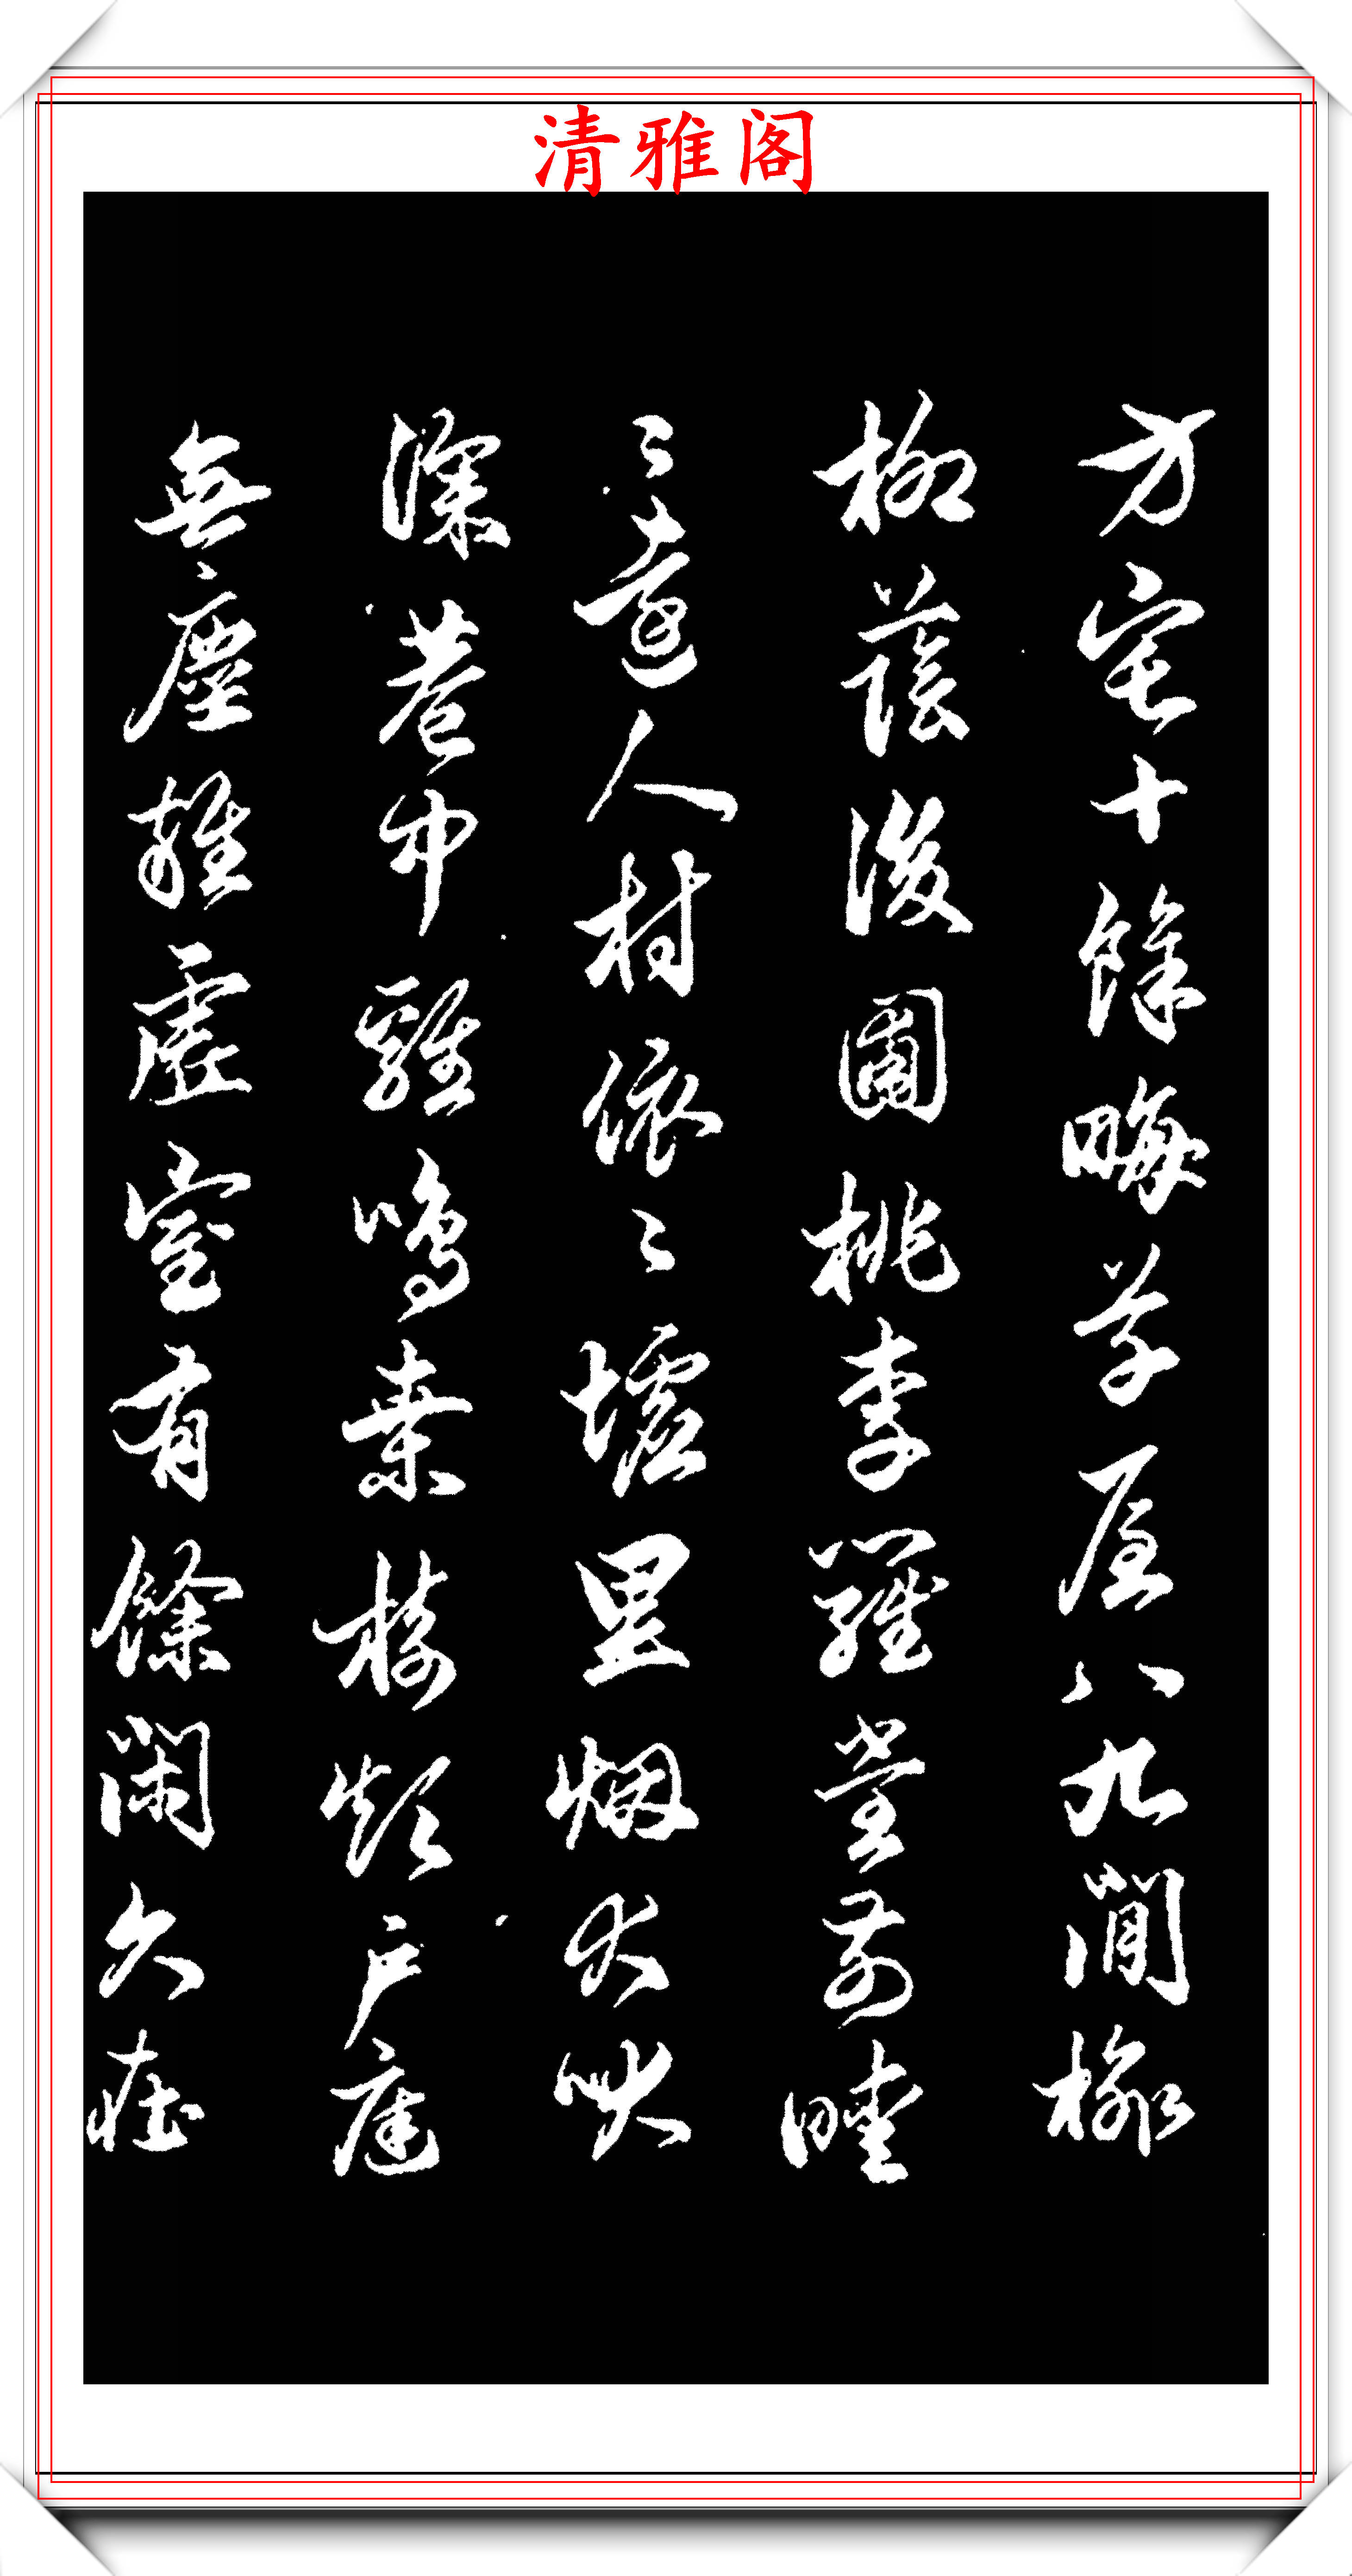 清雅阁
方宅十餘畮草屋八九閒榆
柳蔭後園桃李羅堂前曖
〻遠人村依〻墟里烟犬吠
深巷中雞鳴桑樹顛户庭
無塵雜虛室有餘閑久在